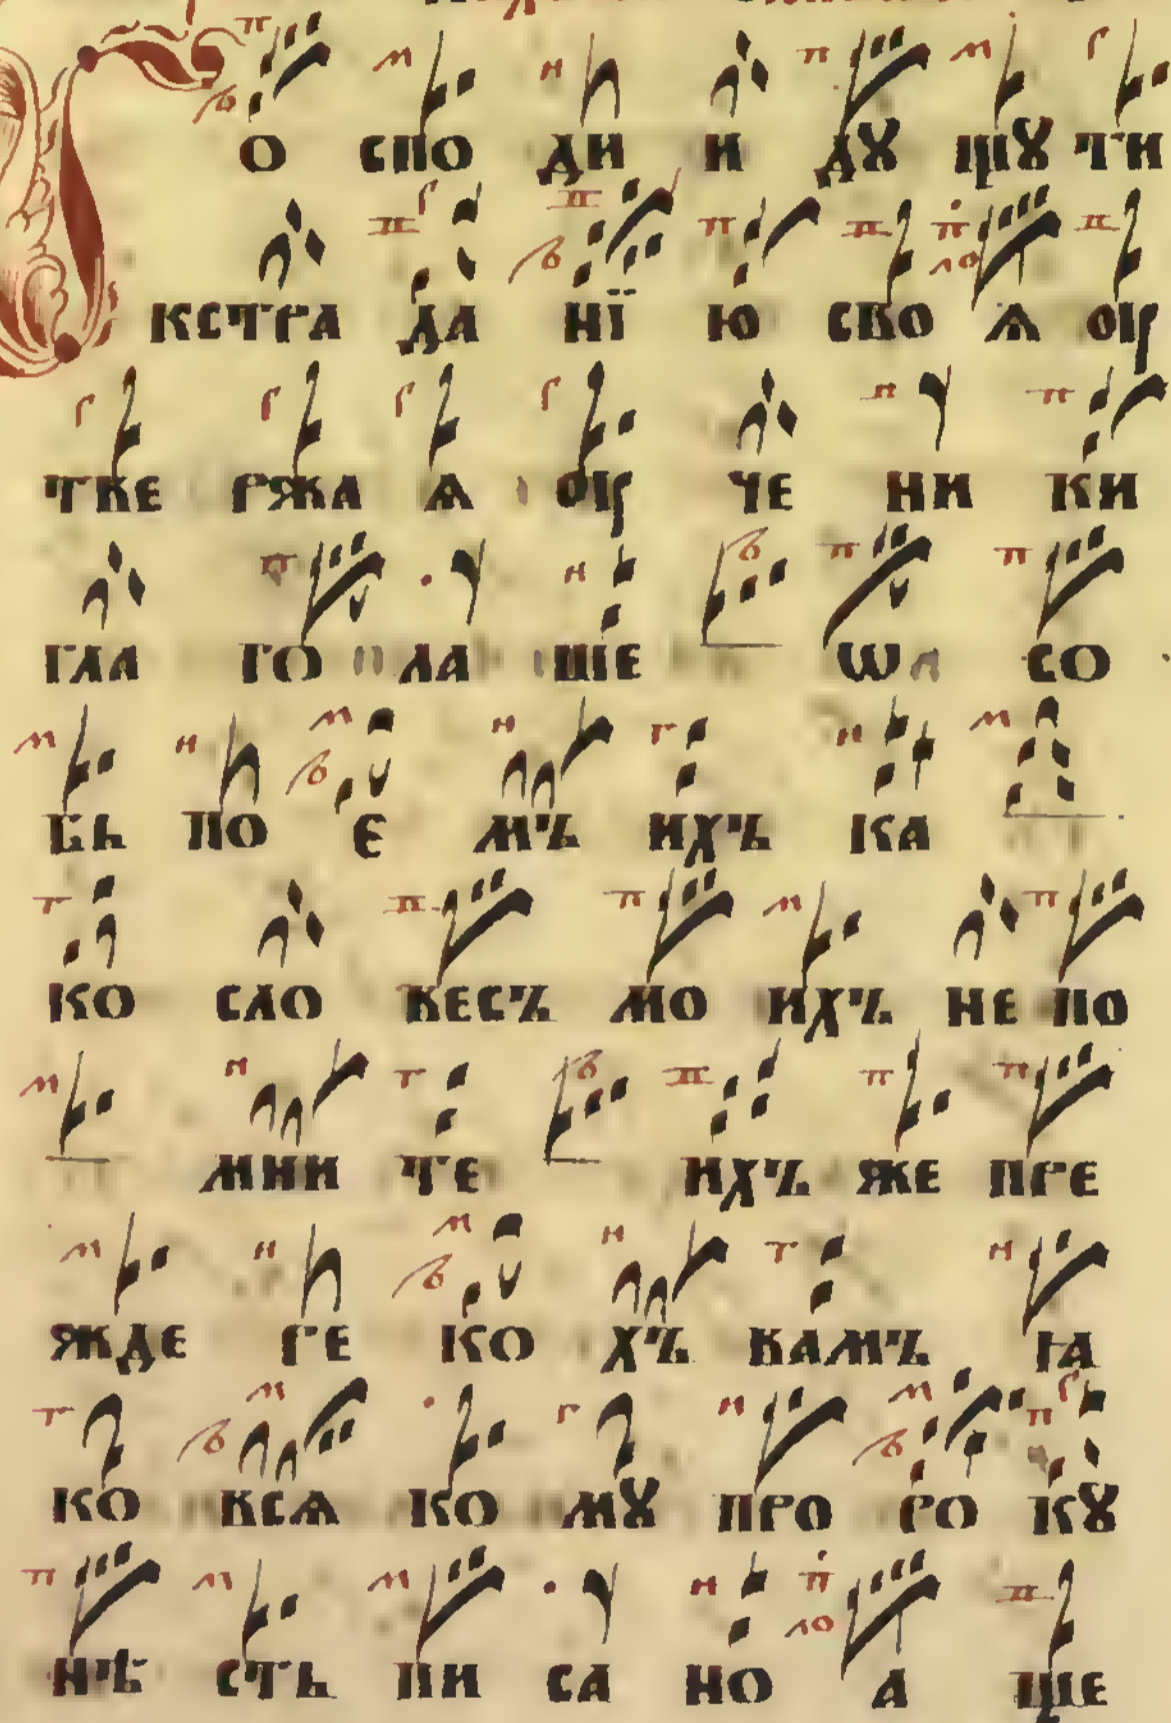 Г О СПО ДИ И ДꙊ ЩꙊ ТИ
КСТРА ДА НЇ Ю СВО Ѧ ОУ
ТВЕ РЖА Ѧ ОУ ЧЕ НИ КИ
ГЛА ГО ЛА ШЕ Ѡ СО
БЬ ПО Е МЪ ИХЪ КА
КО СЛО ВЕСЪ МО ИХЪ НЕ ПО
МНИ ТЕ ИХЪ ЖЕ ПРЕ
ЖДЕ РЕ КО ХЪ ВАМЪ Ꙗ
КО ВСѦ КО МꙊ ПРО РО КꙊ
НѢ СТЬ ПИ СА НО А ЩЕ